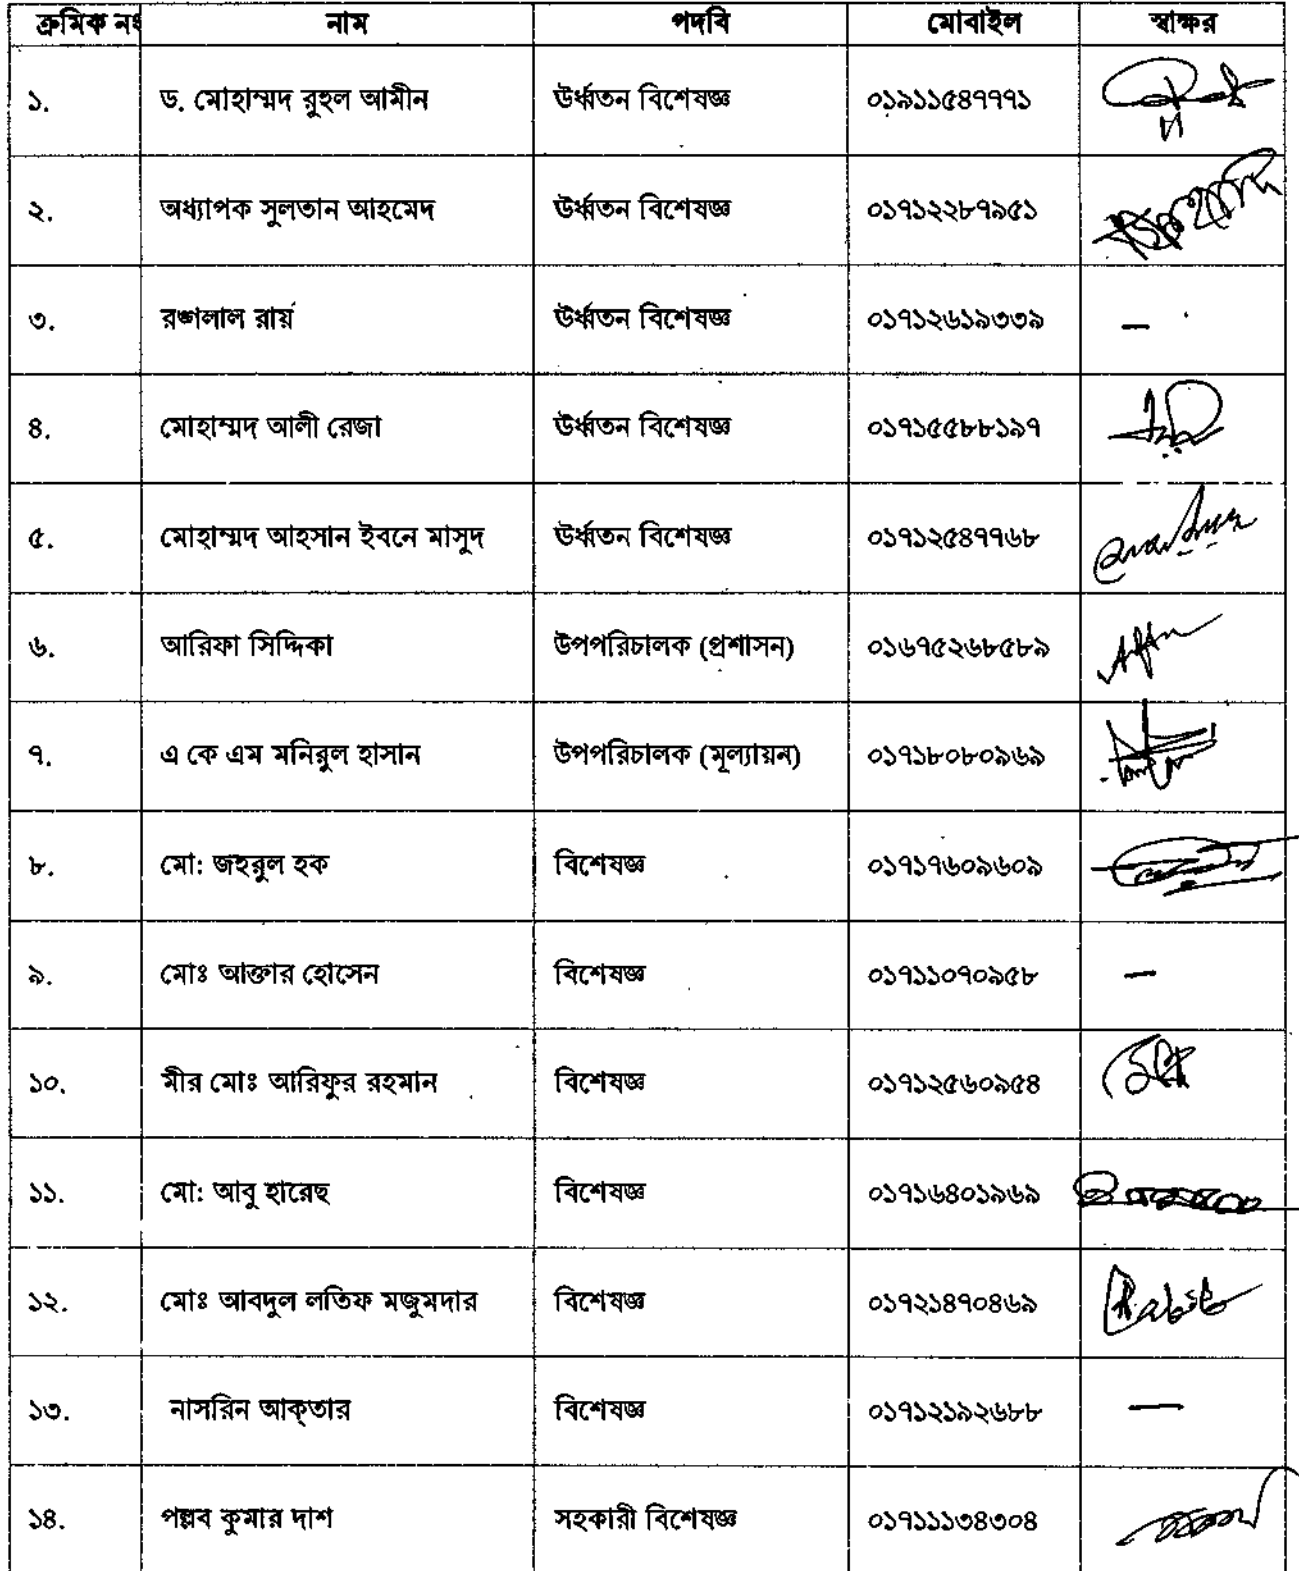 ক্রমিক নং নাম পদবি মোবাইল স্বাক্ষর
১. ড. মোহাম্মদ রুহুল আমীন ঊর্ধ্বতন বিশেষজ্ঞ ০১৯১১৫৪৭৭৭১
২. অধ্যাপক সুলতান আহমেদ ঊর্ধ্বতন বিশেষজ্ঞ ০১৭১২২৮৭৯৫১
৩. রঙ্গলাল রায় ঊর্ধ্বতন বিশেষজ্ঞ ০১৭১২৬১৯৩৩৯ –
৪. মোহাম্মদ আলী রেজা ঊর্ধ্বতন বিশেষজ্ঞ ০১৭১৫৫৮৮১৯৭
৫. মোহাম্মদ আহসান ইবনে মাসুদ ঊর্ধ্বতন বিশেষজ্ঞ ০১৭১২৫৪৭৭৬৮
৬. আরিফা সিদ্দিকা উপপরিচালক (প্রশাসন) ০১৬৭৫২৬৮৫৮৯
৭. এ কে এম মনিরুল হাসান উপপরিচালক (মূল্যায়ন) ০১৭১৮০৮০৯৬৯
৮. মো: জহরুল হক বিশেষজ্ঞ ০১৭১৭৬০৯৬০৯
৯. মোঃ আক্তার হোসেন বিশেষজ্ঞ ০১৭১১০৭০৯৫৮ –
১০. মীর মোঃ আরিফুর রহমান বিশেষজ্ঞ ০১৭১২৫৬০৯৫৪
১১. মো: আবু হারেছ বিশেষজ্ঞ ০১৭১৬৪০১৯৬৯
১২. মোঃ আবদুল লতিফ মজুমদার বিশেষজ্ঞ ০১৭২১৪৭০৪৬৯
১৩. নাসরিন আক্‌তার বিশেষজ্ঞ ০১৭১২১৯২৬৮৮ –
১৪. পল্লব কুমার দাশ সহকারী বিশেষজ্ঞ ০১৭১১১৩৪৩০৪